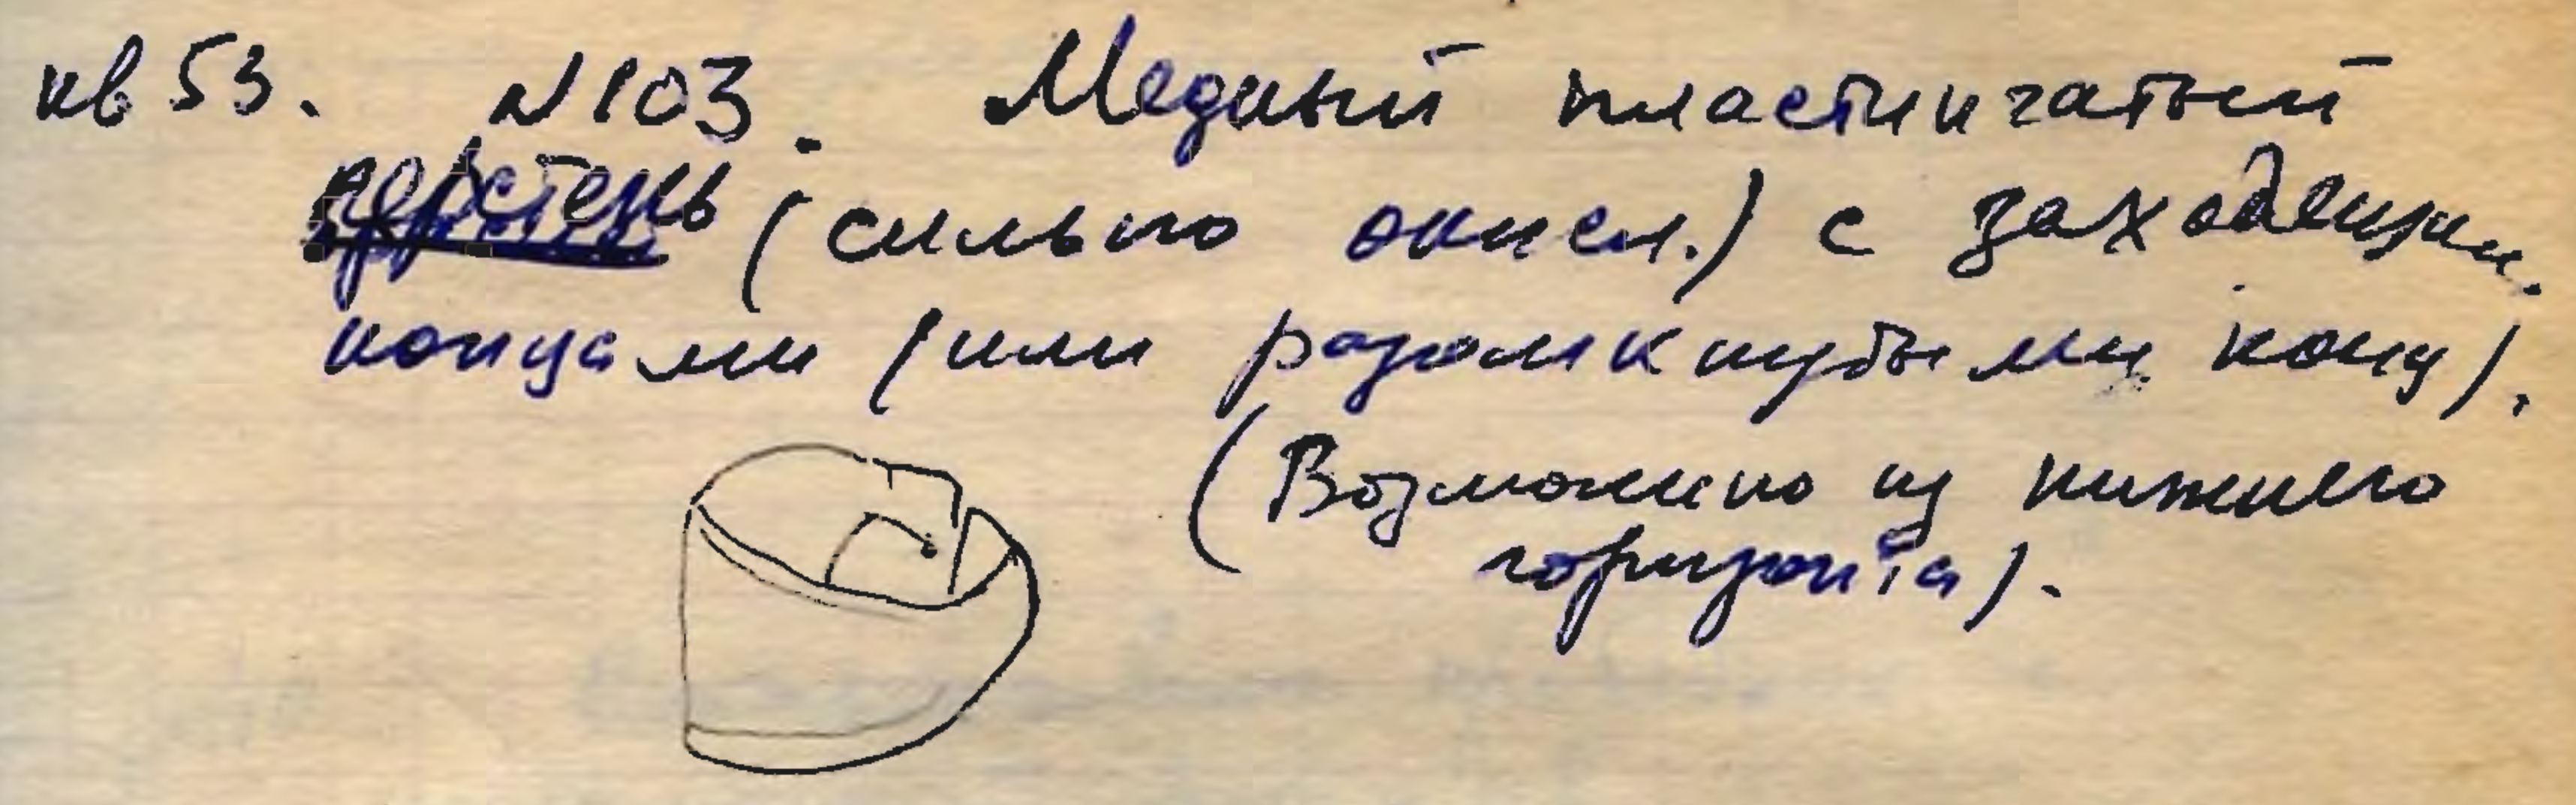 кв 53. №103. Медный пластинчатый
перстень (сильно окисл.) с заходящими
концами (или разомкнутыми конц).
(Возможно из нижнего
горизонта).